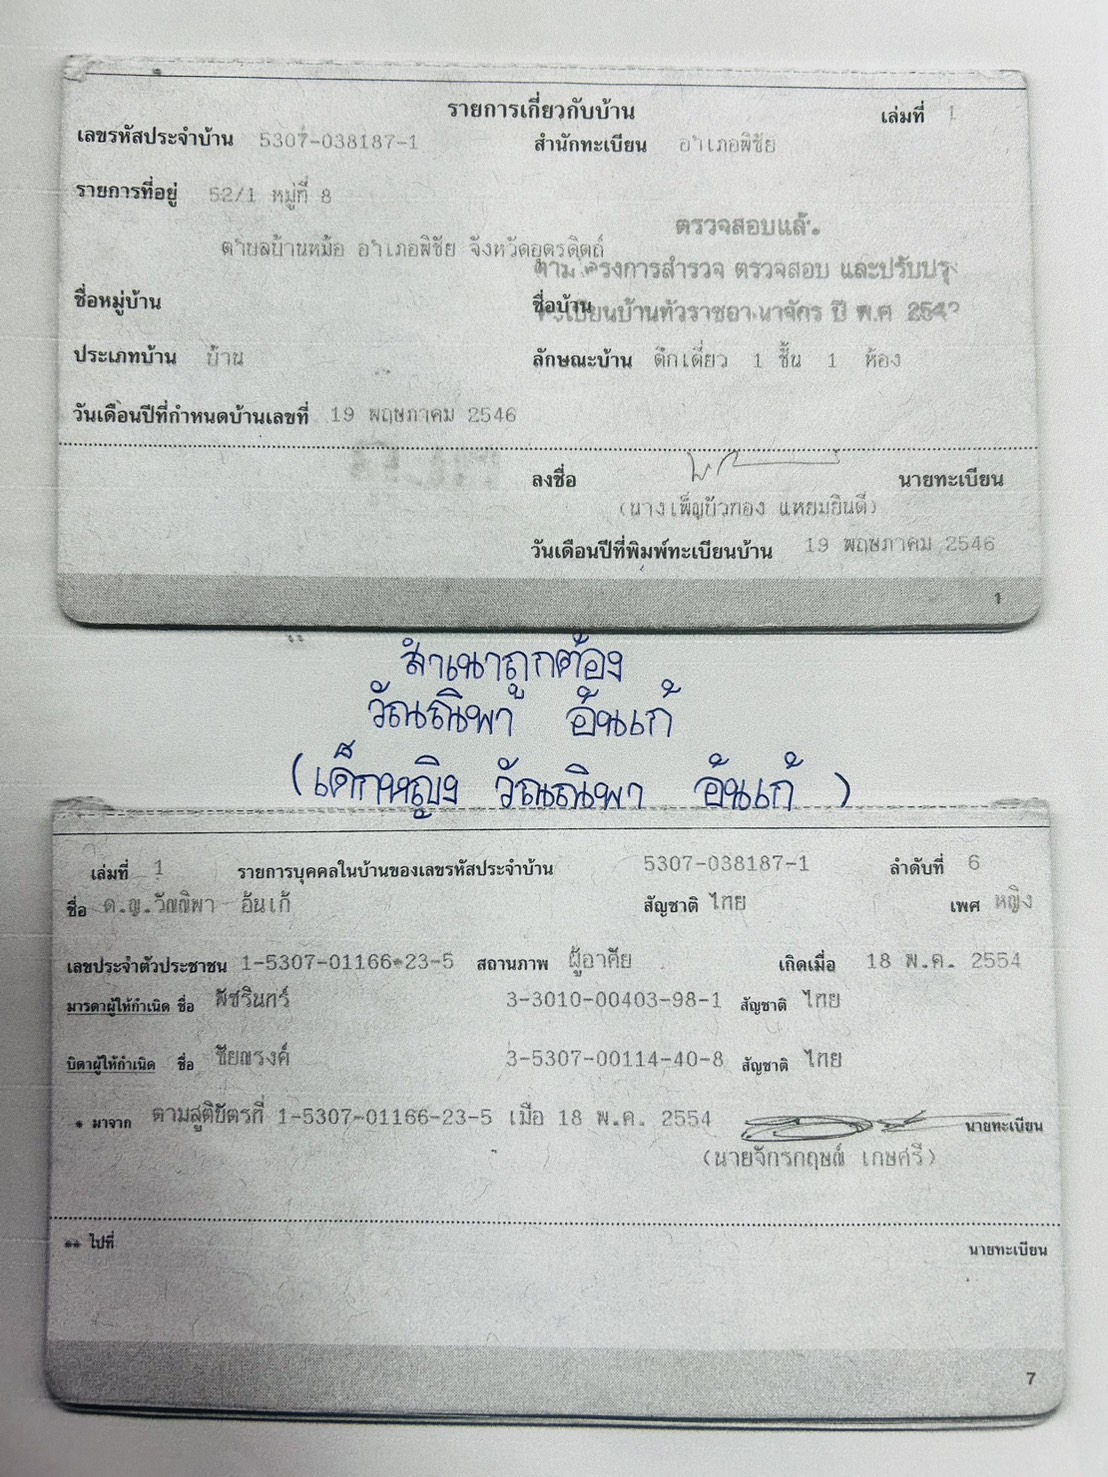 รายการเกี่ยวกับบ้าน เล่มที่ 1
เลขรหัสประจำบ้าน 5307-038187-1 สำนักทะเบียน อำเภอพิชัย
รายการที่อยู่ 52/1 หมู่ที่ 8
ตรวจสอบแล้ว
ตำบลบ้านหม้อ อำเภอพิชัย จังหวัดอุตรดิตถ์
ตามโครงการสำรวจ ตรวจสอบ และปรับปรุง
ชื่อหมู่บ้าน ชื่อบ้าน
ทะเบียนบ้านทั่วราชอาณาจักร ปี พ.ศ 254
ประเภทบ้าน บ้าน ลักษณะบ้าน ตึกเดี่ยว 1 ชั้น 1 ห้อง
วันเดือนปีที่กำหนดบ้านเลขที่ 19 พฤษภาคม 2546
ลงชื่อ นายทะเบียน
(นางเพ็ญบัวทอง แหยมยินดี)
วันเดือนปีที่พิมพ์ทะเบียนบ้าน 19 พฤษภาคม 2546
1
สำเนาถูกต้อง
วัณณิพา อ้นแก้
(เด็กหญิง วัณณิพา อ้นแก้)
เล่มที่ 1 รายการบุคคลในบ้านของเลขรหัสประจำบ้าน 5307-038187-1 ลำดับที่ 6
ชื่อ ด.ญ.วัณณิพา อ้นแก้ สัญชาติ ไทย เพศ หญิง
เลขประจำตัวประชาชน 1-5307-01166-23-5 สถานภาพ ผู้อาศัย เกิดเมื่อ 18 พ.ค. 2554
มารดาผู้ให้กำเนิด ชื่อ พัชรินทร์ 3-3010-00403-98-1 สัญชาติ ไทย
บิดาผู้ให้กำเนิด ชื่อ ชัยณรงค์ 3-5307-00114-40-8 สัญชาติ ไทย
* มาจาก ตามสูติบัตรที่ 1-5307-01166-23-5 เมื่อ 18 พ.ค. 2554 นายทะเบียน
(นายจักรกฤษณ์ เกษศรี)
** ไปที่ นายทะเบียน
7